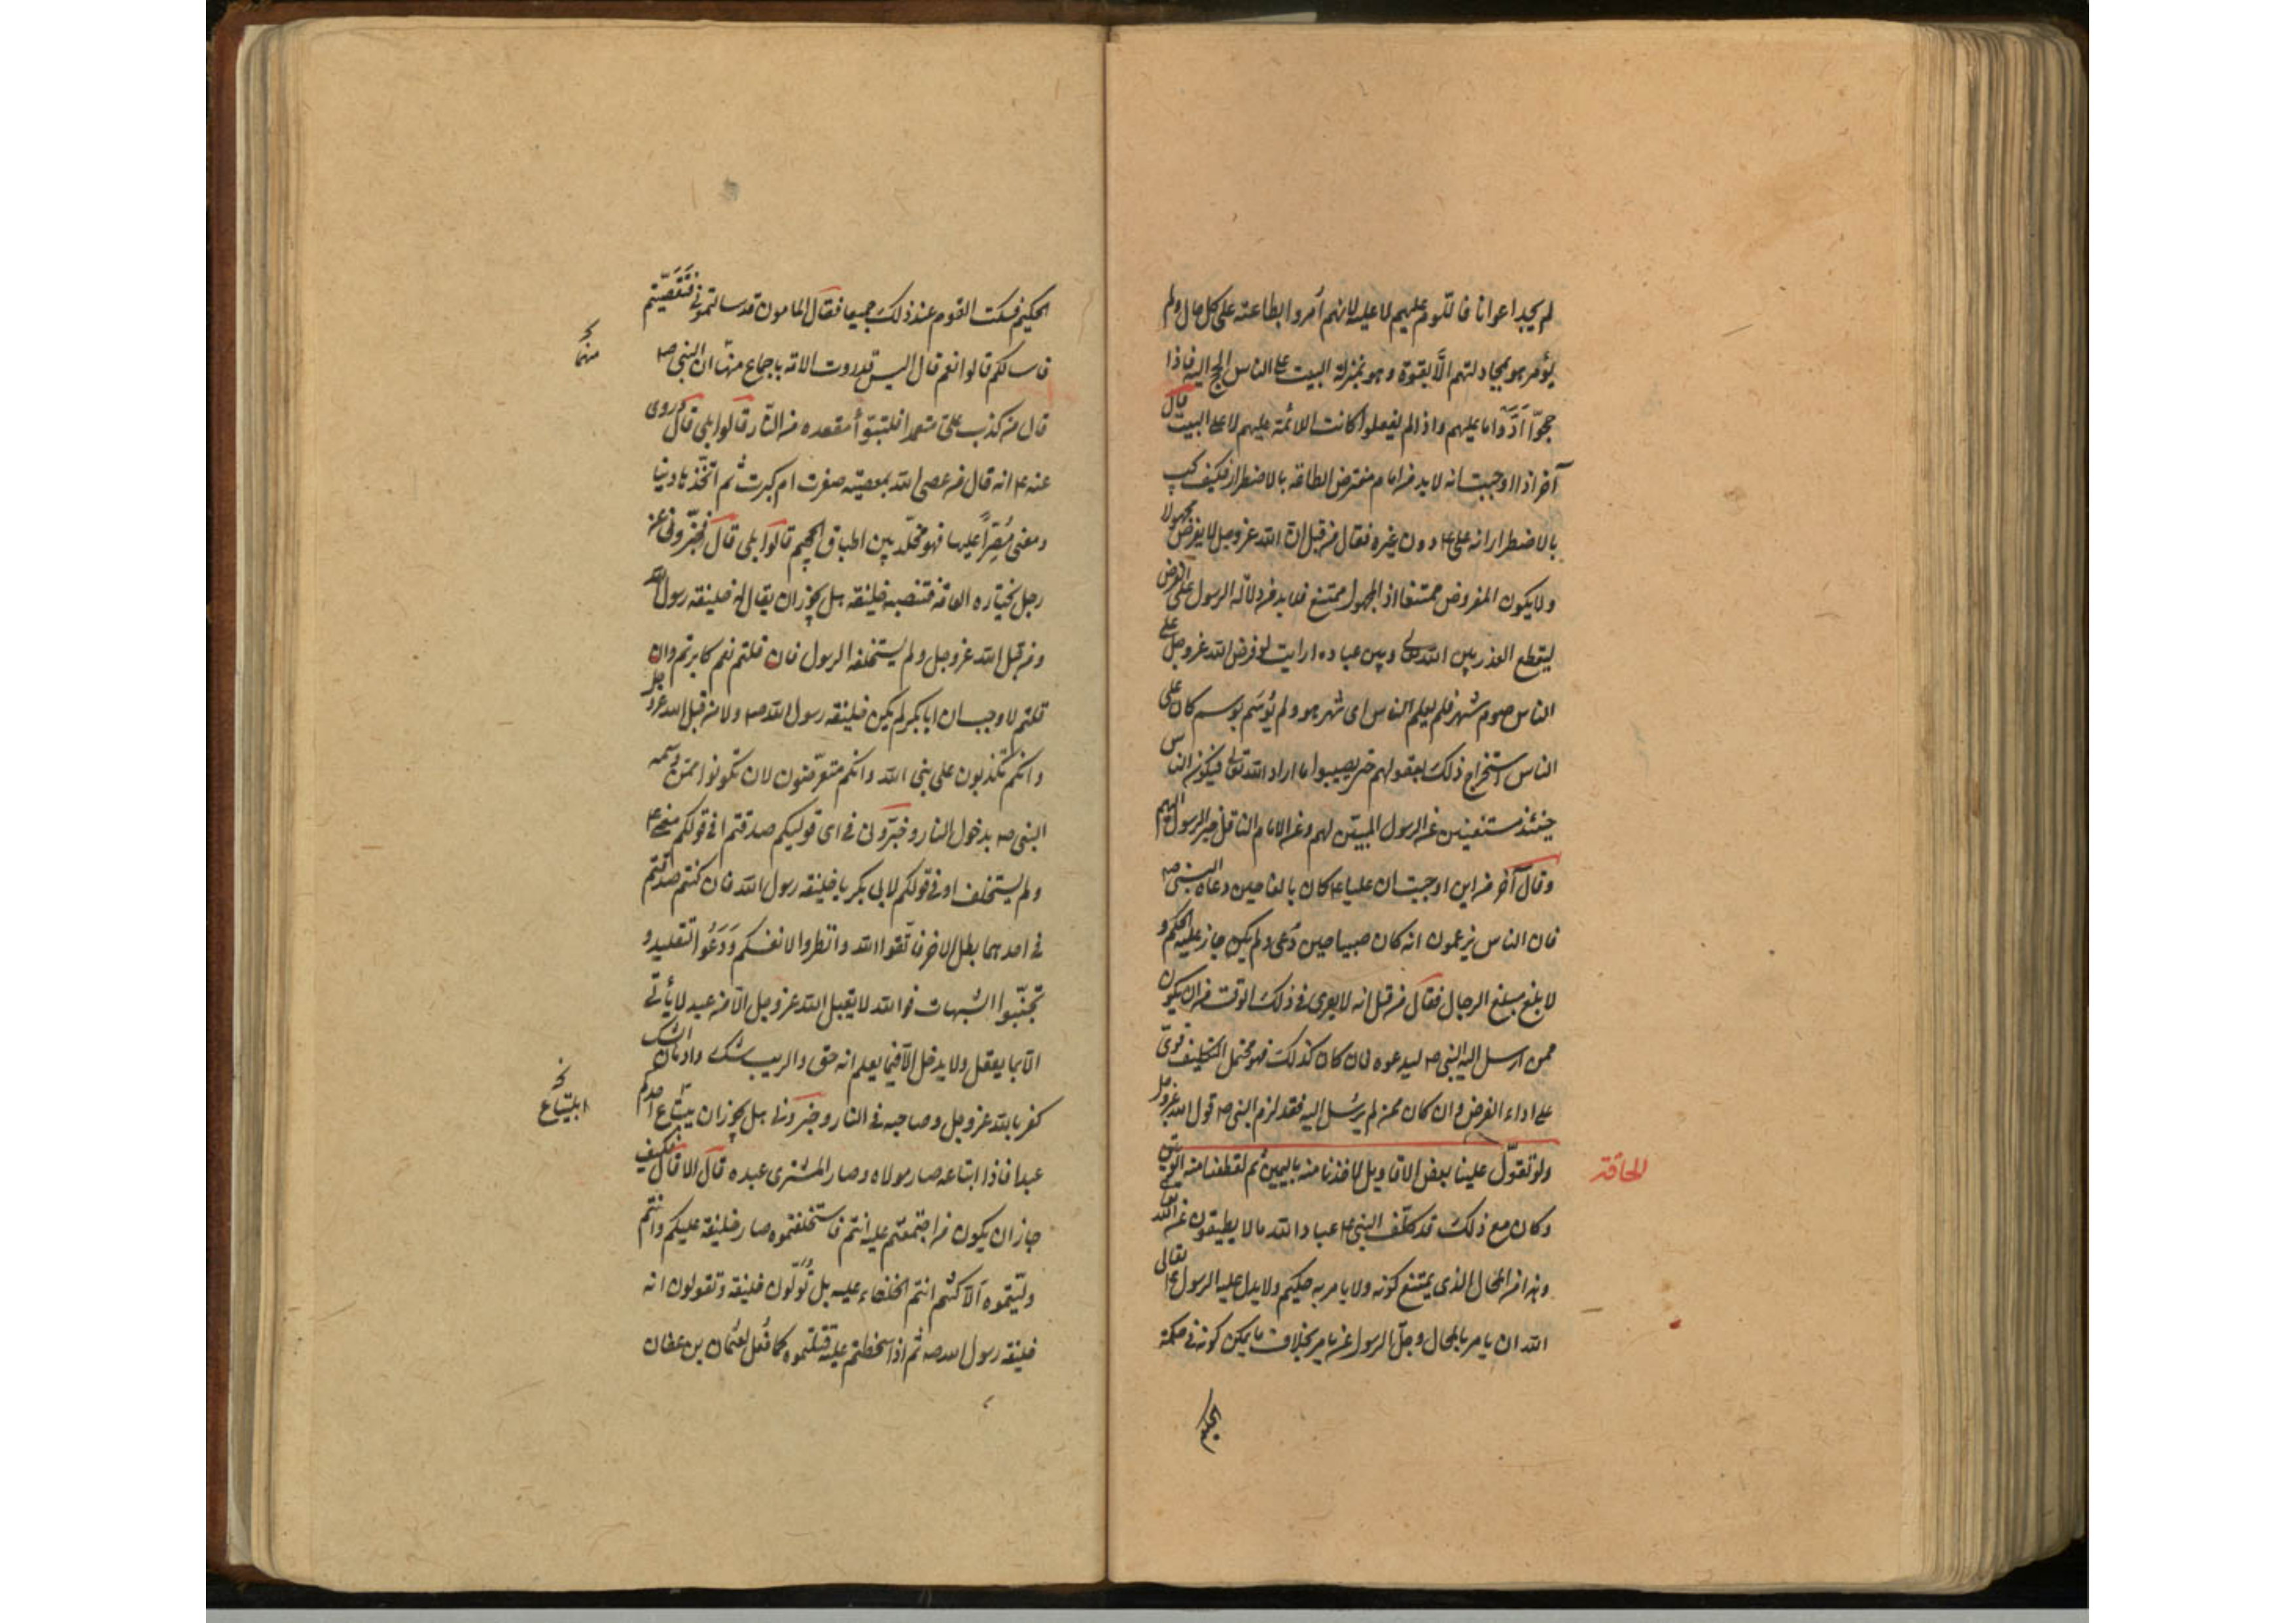 لم يجد اعوانا فاللّوم عليهم لا عليه لانهم اُمروا بطاعته على كل حال ولم
يؤمر هو بمجادلتهم الّا بقوة وهو بمنزلة البيت على الناس الحج اليه فاذا
حجّوا اَدَّوا ما عليهم واذا لم يفعلوا كانت اللائمة عليهم لا على البيت قال
آخر اذا اوجبت انه لا بد من امام مفترض الطاعة بالاضطرار فكيف يجب
بالاضطرار انه علي ع دون غيره فقال من قبل انّ الله عز وجل لا يفرض مجهولا
ولا يكون المفروض ممتنعا اذ المجهول ممتنع فلا بد من دلالة الرسول على الفرض
ليقطع العذر بين الله تعالى وبين عباده ارايت لو فرض الله عز وجل على
الناس صوم شهر فلم يعلم الناس اى شهر هو ولم يُوسَم بوسم كان على
الناس استخراج ذلك بعقولهم حتى يصيبوا ما اراد الله تعالى فيكون الناس
حينئذ مستغنين عن الرسول المبيّن لهم وعن الامام الناقل خبر الرسول اليهم
وقال آخر من اين اوجبت ان عليا ع كان بالغا حين دعاه النبى ص
فان الناس يزعمون انه كان صبيا حين دُعى ولم يكن جاز عليه الحكم و
لا بلغ مبلغ الرجال فقال من قبل انه لا يعرى فى ذلك الوقت من ان يكون
ممن ارسل اليه النبى ص ليدعوه فان كان كذلك فهو محتمل التكليف قوىّ
على اداء الفرض وان كان ممن لم يرسل اليه فقد لزم النبى ص قول الله عز وجل
ولو تقوّل علينا بعض الاقاويل لاخذنا منه باليمين ثم لقطعنا منه الوتين
الحاقة
وكان مع ذلك قد كلّف النبى ع عباد الله ما لا يطيقون عن الله تعالى
وهذا من المحال الذى يمتنع كونه ولا يامر به حكيم ولا يدل عليه الرسول تعالى
الله ان يامر بالمحال وجلّ الرسول عن ان يامر بخلاف ما يمكن كونه فى حكمة
الحكيم
الحكيم فسكت القوم عند ذلك جميعا فقال المامون قد سالتمونى فنقضتم
فاسالكم قالوا نعم قال اليس قد روت الامة باجماع منها ان النبى ص
منهما
قال من كذب علىّ متعمدا فليتبوّأ مقعده من النّار قالوا بلى قال وروى
عنه ع انه قال من عصى الله بمعصيته صغرت ام كبرت ثُم اتّخذها دينا
ومضى مُصِرّاً عليها فهو مخلّد بين اطباق الجحيم قالوا بلى قال فخبّرونى عن
رجل يختاره العامة فتنصبه خليفة هل يجوز ان يقال له خليفة رسول الله
ومن قبل الله عز وجل ولم يستخلفه الرسول فان قلتم نعم كابرتم وان
قلتم لا وجب ان ابا بكر لم يكن خليفة رسول الله ص ولا من قبل الله عز وجل
وانكم تكذبون على نبى الله وانكم متعرّضون لان تكونوا ممن وسمه
النبى ص بدخول النار وخبّرونى فى اى قوليكم صدقتم افى قولكم مضى ع
ولم يستخلف او فى قولكم لابى بكر يا خليفة رسول الله فان كنتم صدقتم
فى احدهما بطل الاخر فاتّقوا الله وانظروا لانفسكم وَدَعُوا التقليد و
تجنّبوا الشبهات فوالله لا يقبل الله عز وجل الّا من عبد لا يأتى
الّا بما يعقل ولا يدخل الّا فيما يعلم انه حق والريب شك وادمان الشك
كفر بالله عز وجل وصاحبه فى النار وخبّرونى هل يجوز ان يبتاع احدكم
ابتياع
عبدا فاذا ابتاعه صار مولاه وصار المشترى عبده قال لا قال فكيف
جاز ان يكون من اجتمعتم عليه انتم فاستخلفتموه صار خليفة عليكم وانتم
ولّيتموه اَلّا كنتم انتم الخلفاء عليه بل تُولّون خليفة وتقولون انه
خليفة رسول الله ص ثم اذا سخطتم عليه قتلتموه كما فُعل لعثمان بن عفان